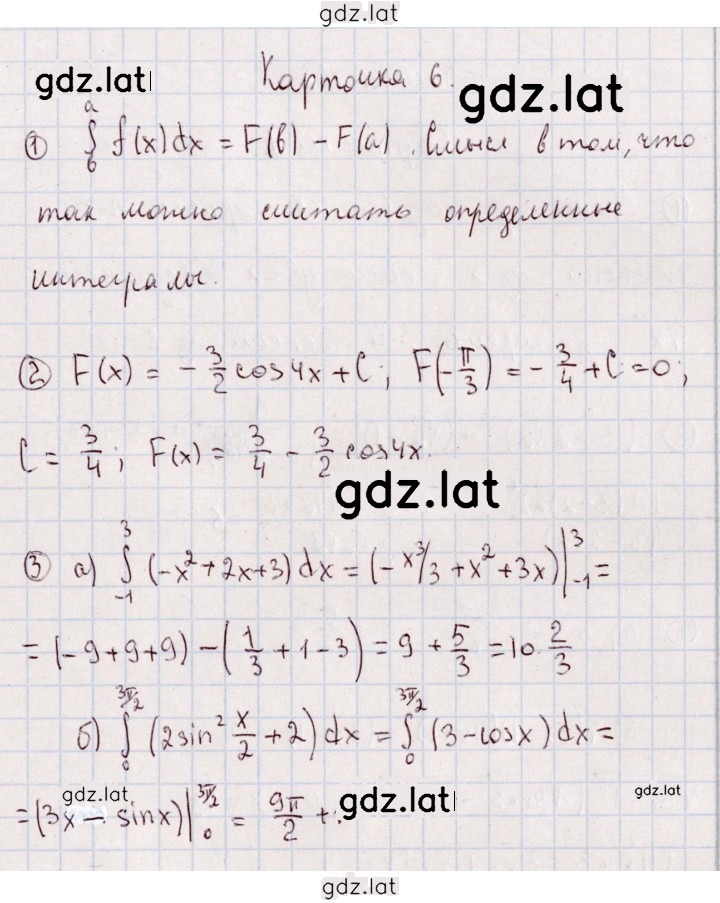 gdz.lat
Карточка 6.
gdz.lat
gdz.lat
① ∫_б^a f(x)dx = F(б) - F(a). Смысл в том, что
так можно считать определенные
интегралы.
② F(x) = -3/2 cos4x + C; F(-π/3) = -3/4 + C = 0;
C = 3/4; F(x) = 3/4 - 3/2 cos4x.
gdz.lat
③ а) ∫_{-1}^{3} (-x²+2x+3)dx = (-x³/3 + x² + 3x)|_{-1}^{3} =
= (-9+9+9) - (1/3 + 1 - 3) = 9 + 5/3 = 10 2/3
б) ∫_0^{3π/2} (2sin² x/2 + 2)dx = ∫_0^{3π/2} (3 - cosx)dx =
gdz.lat
gdz.lat
gdz.lat
= (3x - sinx)|_0^{3π/2} = 9π/2 +
gdz.lat